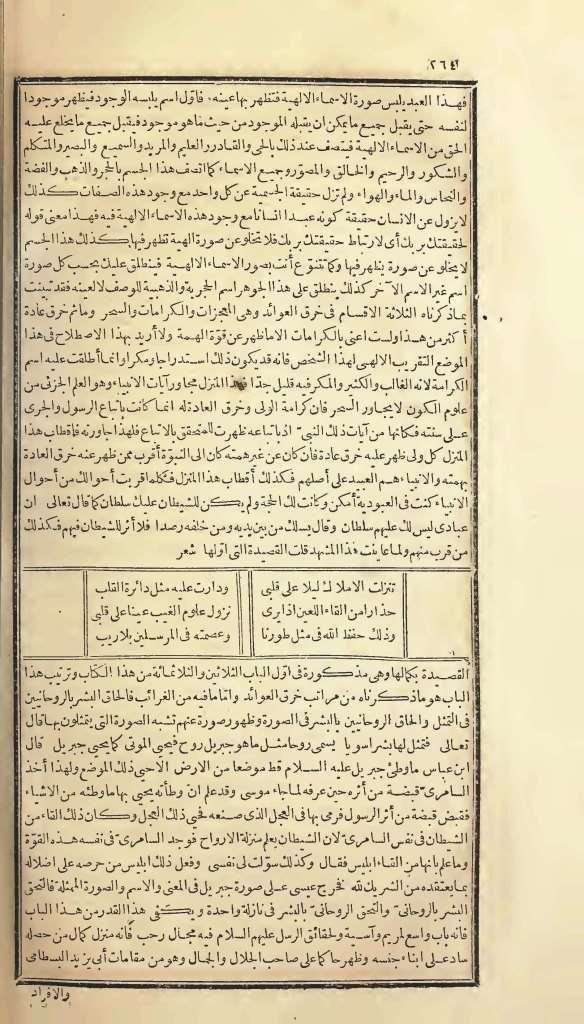 ٢٦٤
فهذا العبد يلبس صورة الاسماء الالهية فتظهر بها عينه فاول اسم يلبسه الوجود فيظهر موجودا
لنفسه حتى يقبل جميع ما يمكن ان يقبله الموجود من حيث ما هو موجود فيقبل جميع ما يخلع عليه
الحق من الاسماء الالهية فيتصف عند ذلك بالحى والقادر والعليم والمريد والسميع والبصير والمتكلم
والشكور والرحيم والخالق والمصور وجميع الاسماء كما اتصف هذا الجسم بالحجر والذهب والفضة
والنحاس والماء والهواء ولم تزل حقيقة الجسمية عن كل واحد مع وجود هذه الصفات كذلك
لا يزول عن الانسان حقيقة كونه عبدا انسانا مع وجود هذه الاسماء الالهية فيه فهذا معنى قوله
لحقيقتك بربك أى لارتباط حقيقتك بربك فلا يخلو عن صورة الهية تظهر فيها كذلك هذا الجسم
لا يخلو عن صورة يظهر فيها وكما تتنوع أنت بصور الاسماء الالهية فينطلق عليك بحسب كل صورة
اسم غير الاسم الآخر كذلك ينطلق على هذا الجوهر اسم الحجرية والذهبية للوصف لا لعينه فقد تبينت
بما ذكرناه الثلاثة الاقسام فى خرق العوائد وهى المعجزات والكرامات والسحر وما ثم خرق عادة
أكثر من هذا ولست اعنى بالكرامات الا ما ظهر عن قوة الهمة ولا أريد بهذا الاصطلاح فى هذا
الموضع التقريب الالهى لهذا الشخص فانه قد يكون ذلك استدراجا ومكرا وانما أطلقت عليه اسم
الكرامة لانه الغالب والكثير والمكر فيه قليل جدا فهذا المنزل مجاور آيات الانبياء وهو العلم الجزئى من
علوم الكون لا يجاور السحر فان كرامة الولى وخرق العادة له انما كانت باتباع الرسول والجرى
على سنته فكأنها من آيات ذلك النبى اذ باتباعه ظهرت للمتحقق بالاتباع فلهذا جاورته فاقطاب هذا
المنزل كل ولى ظهر عليه خرق عادة فان كان عن غير همته كان الى النبوة أقرب ممن ظهر عنه خرق العادة
بهمته والانبياء هم العبيد على أصلهم فكذلك أقطاب هذا المنزل فكلما قربت أحوالك من أحوال
الانبياء كنت فى العبودية أمكن وكانت لك الحجة ولم يكن للشيطان عليك سلطان كما قال تعالى ان
عبادى ليس لك عليهم سلطان وقال يسلك من بين يديه ومن خلفه رصدا فلا أثر للشيطان فيهم فكذلك
من قرب منهم ولما عاينت هذا المشهد قلت القصيدة التى اولها شعر
تنزلت الاملاك ليلا على قلبى ودارت عليه مثل دائرة القلب
حذارا من القاء اللعين اذا يرى نزول علوم الغيب عينا على قلبى
وذلك حفظ الله فى مثل طورنا وعصمته فى المرسلين بلا ريب
القصيدة بكمالها وهى مذكورة فى اول الباب الثلاثين والثلاثمائة من هذا الكتاب وترتيب هذا
الباب هو ما ذكرناه من مراتب خرق العوائد وأما ما فيه من الغرائب فالحاق البشر بالروحانيين
فى التمثل والحاق الروحانيين بالبشر فى الصورة وظهور صورة عنهم تشبه الصورة التى يتمثلون بها قال
تعالى فتمثل لها بشرا سويا يسمى روحا مثل ما هو جبريل روح فيحيى الموتى كما يحيى جبريل قال
ابن عباس ما وطئ جبريل عليه السلام قط موضعا من الارض الا حيى ذلك الموضع ولهذا أخذ
السامرى قبضة من أثره حين عرفه لما جاء موسى وقد علم ان وطأته يحيى بها ما وطئه من الاشياء
فقبض قبضة من أثر الرسول فرمى بها فى العجل الذى صنعه فحيى ذلك العجل وكان ذلك القاء من
الشيطان فى نفس السامرى لان الشيطان يعلم منزلة الارواح فوجد السامرى فى نفسه هذه القوة
وما علم بانها من القاء ابليس فقال وكذلك سولت لى نفسى وفعل ذلك ابليس من حرصه على اضلاله
بما يعتقده من الشريك لله فخرج عيسى على صورة جبريل فى المعنى والاسم والصورة الممثلة فالتحق
البشر بالروحانى والتحق الروحانى بالبشر فى نازلة واحدة ويكفى هذا القدر من هذا الباب
فانه باب واسع لمريم وآسية ولحقائق الرسل عليهم السلام فيه مجال رحب فانه منزل كمال من حصله
ساد على ابناء جنسه وظهر حاكما على صاحب الجلال والجمال وهو من مقامات أبى يزيد البسطامى
والافراد